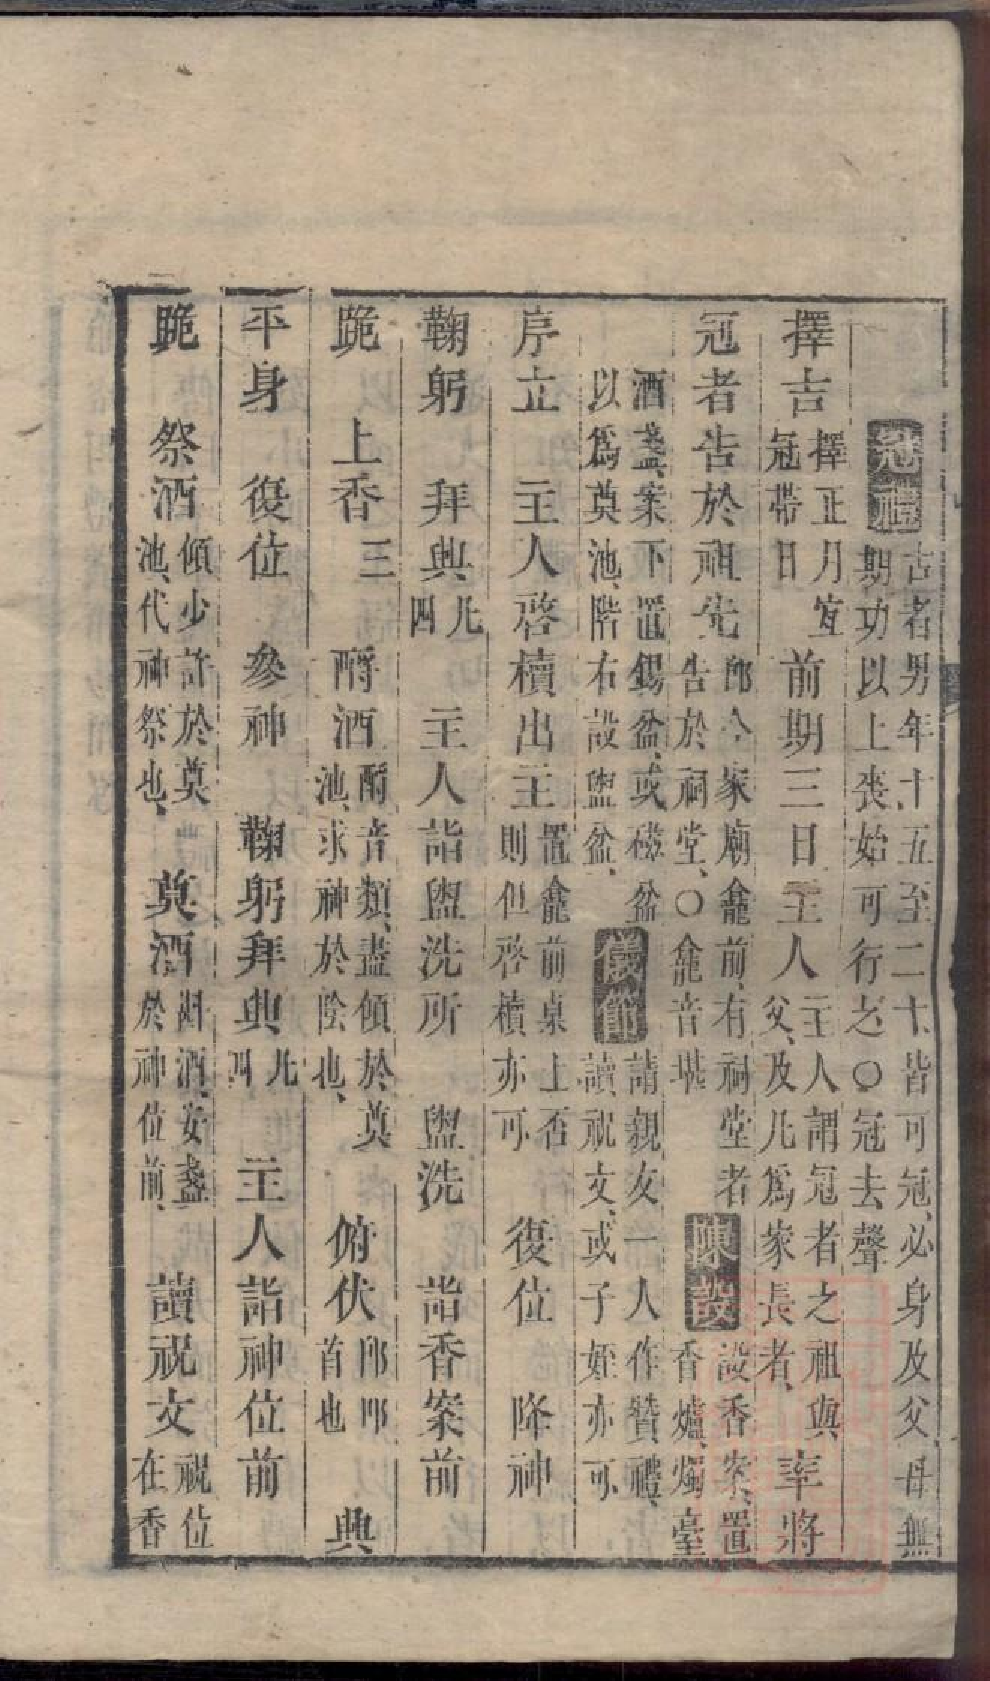 冠禮 古者男年十五至二十皆可冠、必身及父母無期功以上喪始可行之〇冠去聲
擇吉 擇正月宜冠帶日 前期三日主人 主人謂冠者之祖與父、及凡爲家長者、 率將
冠者告於祖先 卽今家廟龕前、有祠堂者告於祠堂、〇龕音堪 陳設 設香案、置香爐、燭臺
酒盞、案下置錫盆、或磁盆以爲奠池、階右設盥盆、 儀節 請親友一人作贊禮、讀祝文、或子姪亦可
序立 主人啓櫝出主 置龕前桌上否則但啓櫝亦可 復位 降神
鞠躬 拜興 凡四 主人詣盥洗所 盥洗 詣香案前
跪 上香 三 酹酒 酹音類、盡傾於奠池、求神於陰也、 俯伏 卽叩首也 興
平身 復位 參神 鞠躬拜興 凡四 主人詣神位前
跪 祭酒 傾少許於奠池、代神祭也、 奠酒 斟酒、安盞於神位前、 讀祝文 祝位在香